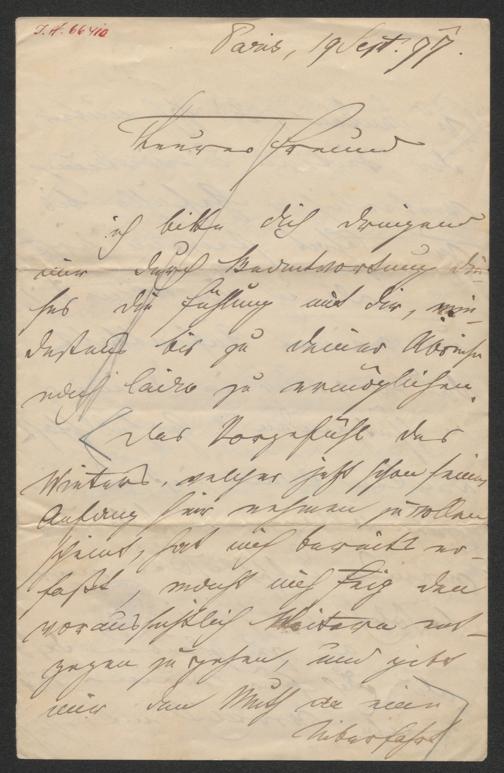 J. N. 66410
Paris, 19 Sept. 97.
Theures Freund
ich bitte dich dringend
mir durch Beantwortung die-
ses die Fühlung mit dir, min-
destens bis zu deiner Abreise
nach zu ermöglichen.
Das Vorgefühl des
Winters, welcher jetzt schon seinen
Anfang hier nehmen zu wollen
scheint, hat mich bereits er-
faßt, macht mich feig den
voraussichtlich Weitern ent-
gegen zu gehen, und gibt
mir den Muth an eine
Überfahrt